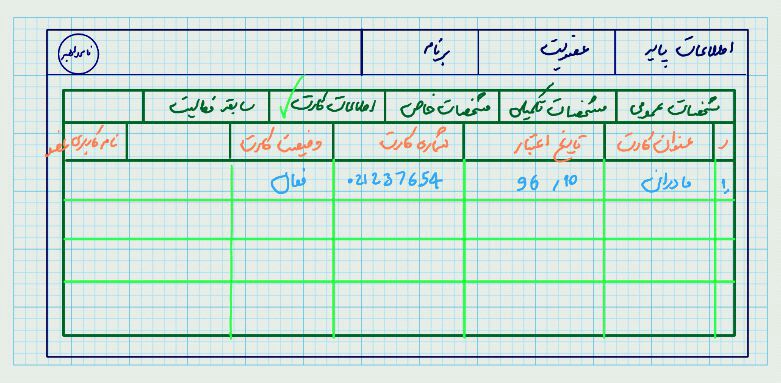 اطلاعات پایه عضویت برنامه
مشخصات عمومی مشخصات تکمیلی مشخصات خاص اطلاعات کارت سابقه فعالیت
ر عنوان کارت تاریخ اعتبار شماره کارت وضعیت کارت نام کاربری
1 مادرانی 96/10 021237654 فعال